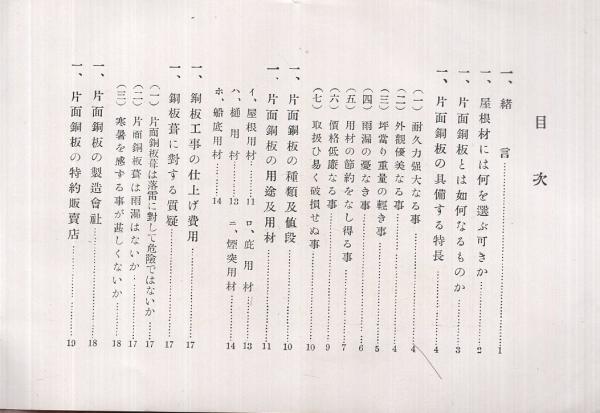 目次
一、緒言……1
一、屋根材には何を選ぶ可きか……2
一、片面銅板とは如何なるものか……3
一、片面銅板の具備する特長……4
(一)耐久力强大なる事……4
(二)外觀優美なる事……4
(三)坪當り重量の輕き事……5
(四)雨漏の憂なき事……6
(五)用材の節約をなし得る事……7
(六)價格低廉なる事……9
(七)取扱ひ易く破損せぬ事……10
一、片面銅板の種類及値段……10
一、片面銅板の用途及用材……11
イ、屋根用材……11 ロ、庇用材……13
ハ、樋用材……13 ニ、煙突用材……14
ホ、船底用材……14
一、銅板工事の仕上げ費用……17
一、銅板葺に對する質疑……17
(一)片面銅板葺は落雷に對して危險ではないか……17
(二)片面銅板葺は雨漏はないか……17
(三)寒暑を感ずる事が甚しくないか……18
一、片面銅板の製造會社……18
一、片面銅板の特約販賣店……19